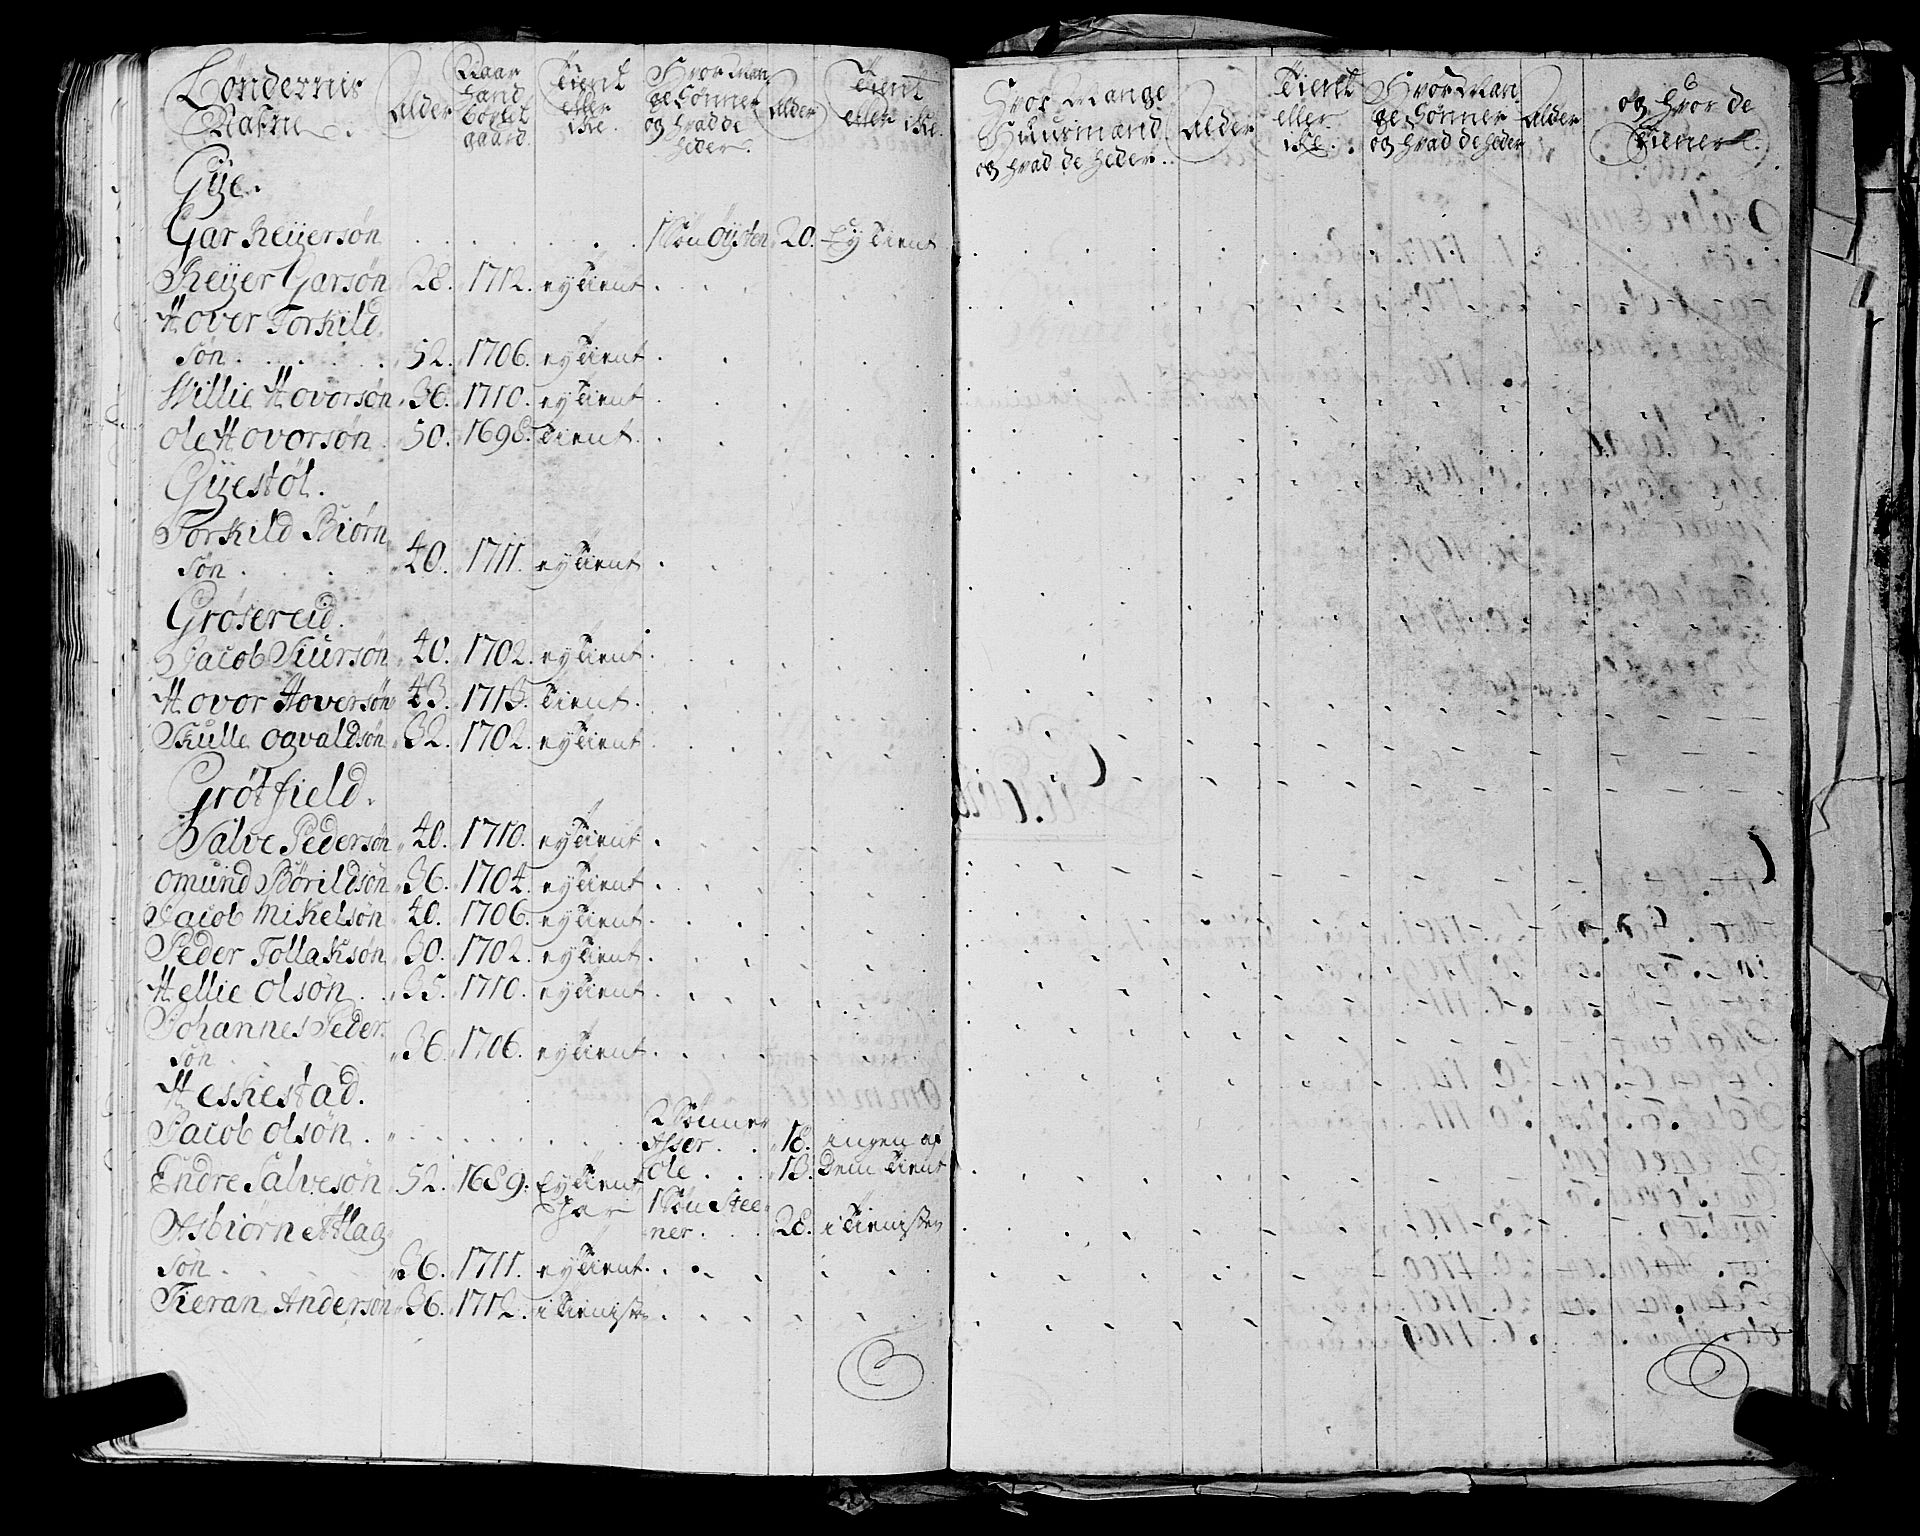 Bøndernis Nafne. Alder Naar hand bortit gaard. Tient eller ike. Hvor Man ge Sønner og hvad de heder. Alder Tient eller ike.
Gye.
Gar Reyersøn . . . . . . 1 Søn Øysten 20. Ey Tient
Reyer Garsøn 28. 1712. ey Tient
Hover Torkild
søn . . . . 52. 1706. ey Tient
Willie Hovorsøn 36. 1710. ey Tient
Ole Hovorsøn 50. 1698. Tient
Gyestøl.
Torkild Biørn
søn . . . . 40. 1711. ey Tient
Grøsereid.
Jacob Siursøn 40. 1702. ey Tient
Hovor Hoversøn 43. 1713. Tient
Skulle Ogvaldsøn 32. 1702. ey Tient
Grøtfield.
Salve Pedersøn 40. 1710. ey Tient
Omund Børildsøn 36. 1704. ey Tient
Jacob Mikelsøn 40. 1706. ey Tient
Peder Tollaksøn 30. 1702. ey Tient
Hellie Olsøn 35. 1710. ey Tient
Johannes Peder
søn . 36. 1706. ey Tient
Heskestad.
Jacob Olsøn . . . . 2 Sønner
Asser . . 18. ingen af
Ole . . . 13. Dem Tient
Endre Salvesøn 52. 1689. Ey Tient
har 1 Søn Stee
ner . . . 28. i Tieniste
Asbiørn Aslag
søn . . . . 36. 1711. ey Tient
Kieran Andersøn 36. 1712. i Tieniste
Hvor Mange Huusmænd og hvad de heder. Alder Tient eller ike. Hvor Man ge Sønner og hvad de heder Alder og hvor de tiener.